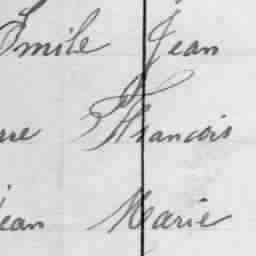 Emile Jean
rre Francois
Jean Marie